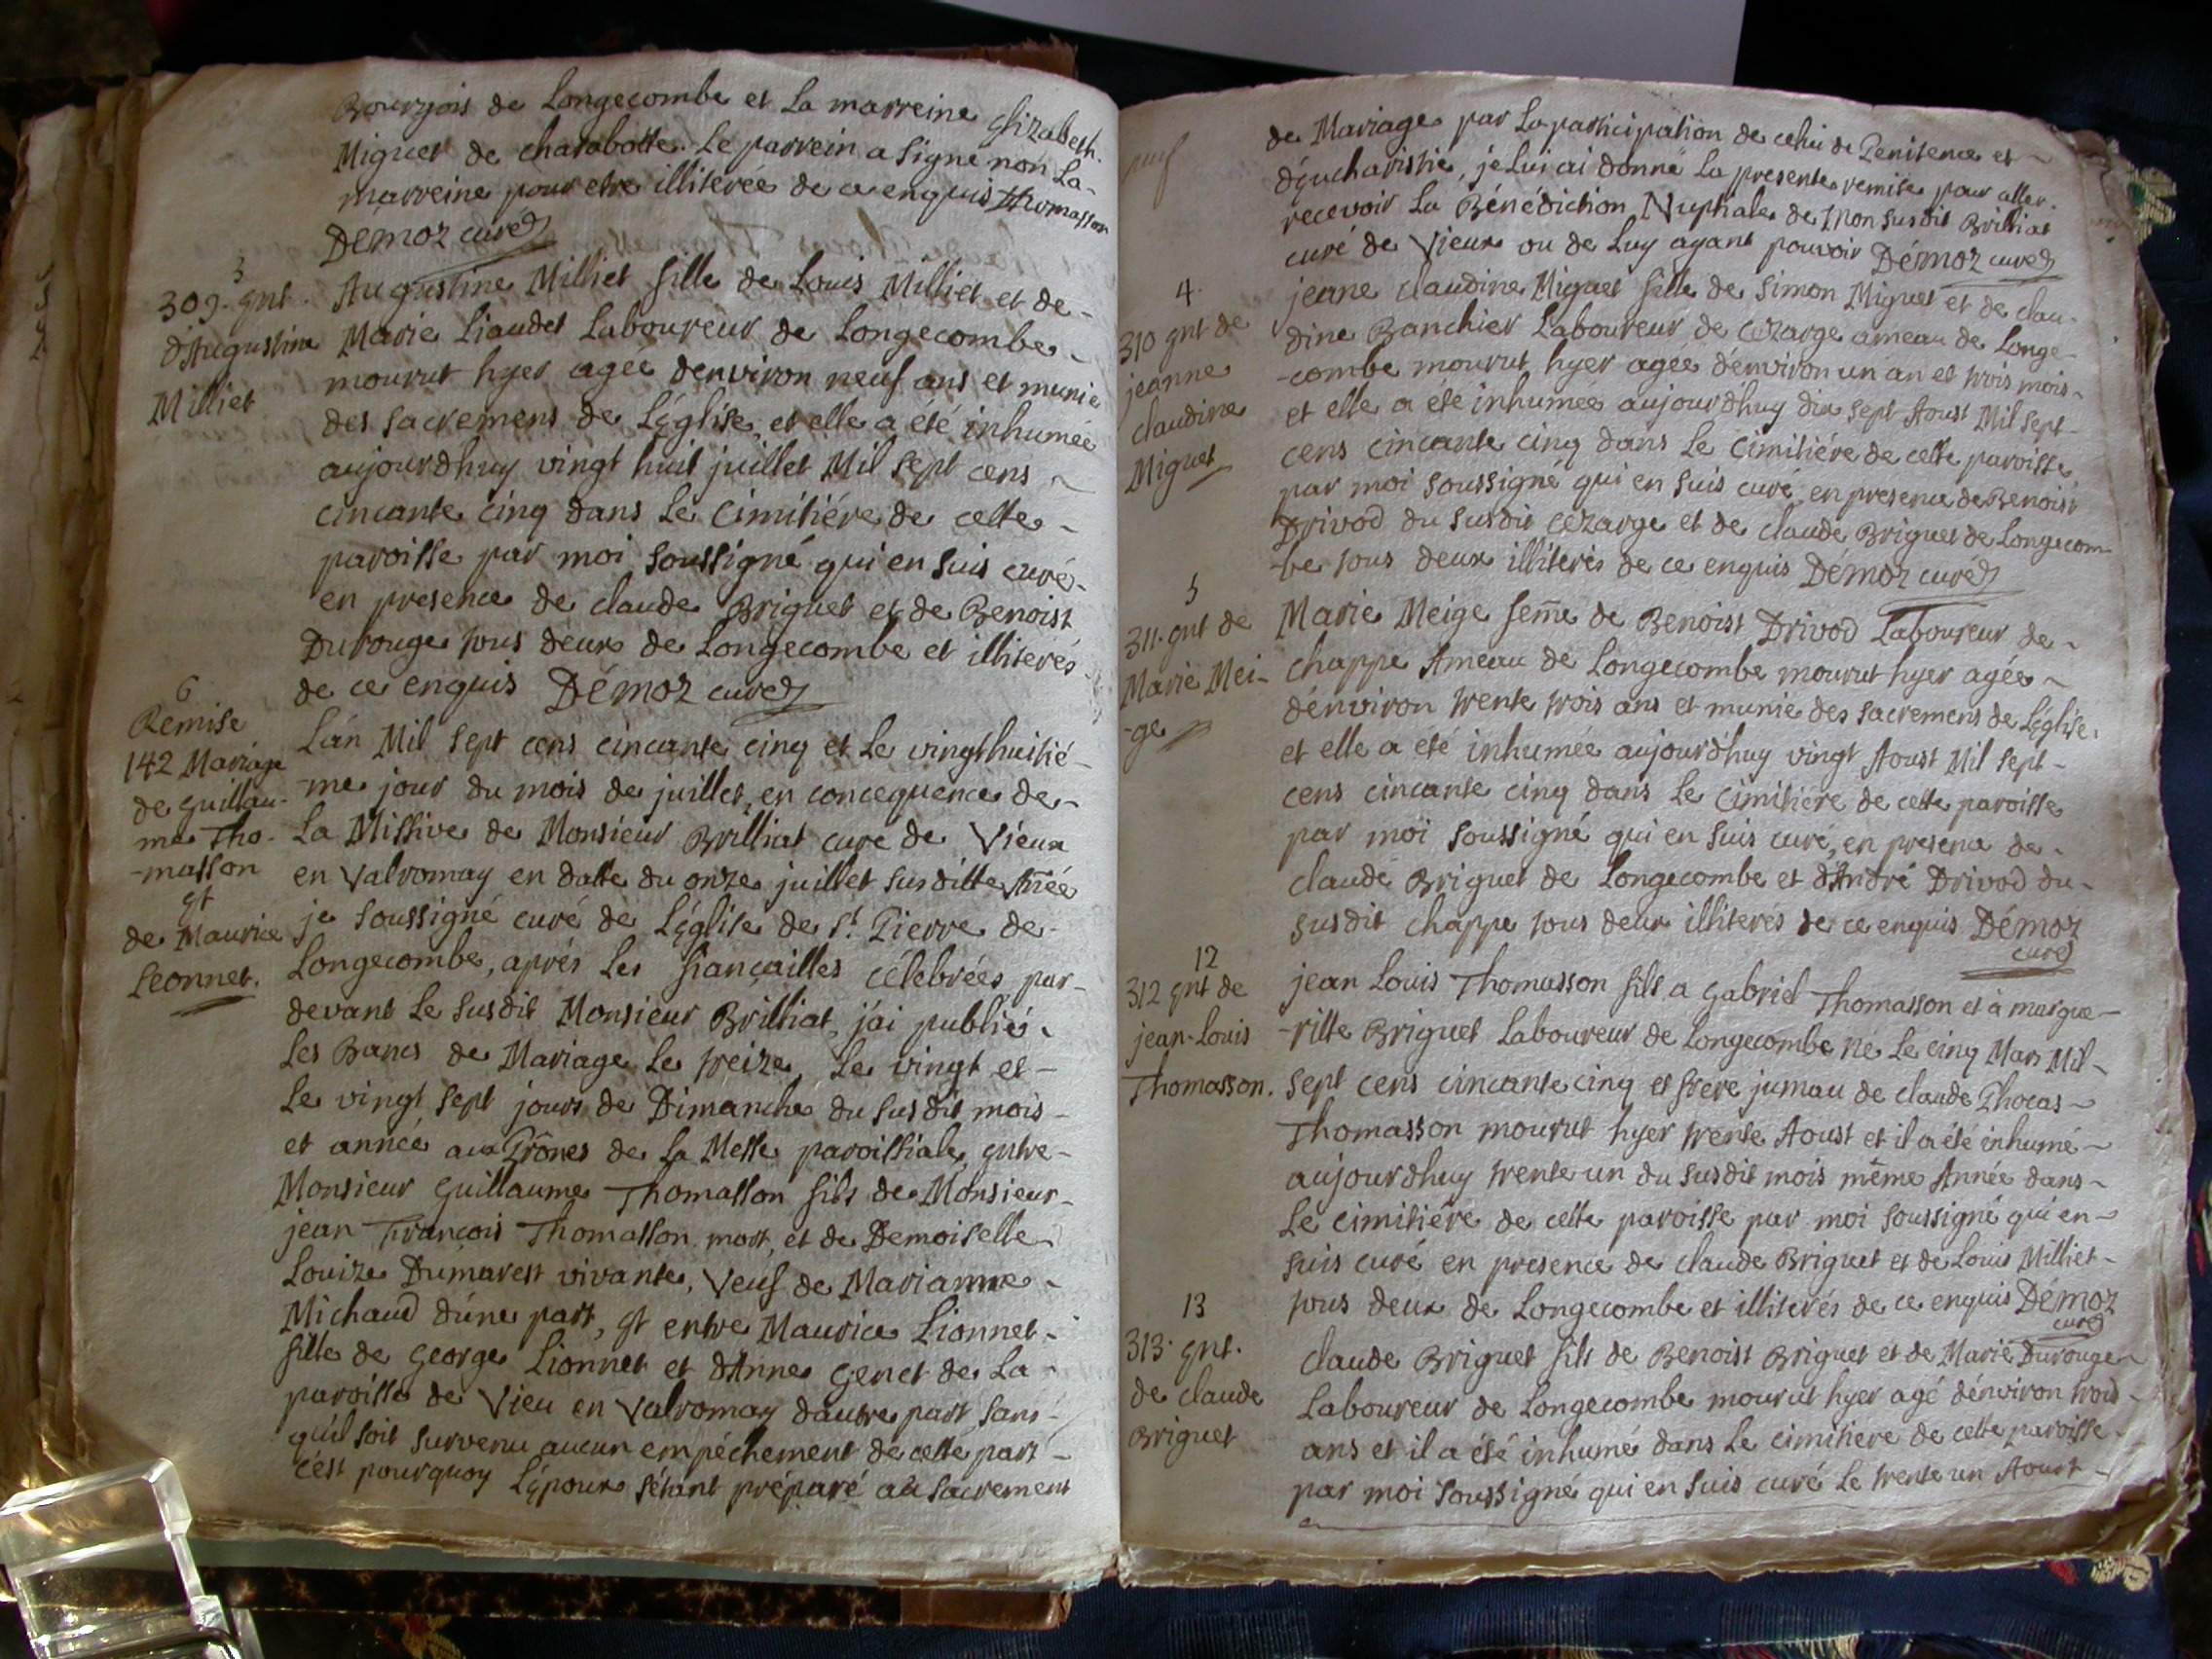 Bourgois de Longecombe et la marreine Elizabeth
Miguet de charabotte. Le parrein a signé non La-
marreine pour etre illiterée de ce enquis Thomasson
DÉMOZ curé
3
309. Ent.
d'Augustine
Milliet
Augustine Milliet fille de Louis Milliet et de-
Marie Liaudet Laboureur de Longecombe-
mourut hyer agée denviron neuf ans et munie
des sacremens de L'église, et elle a été inhumée
aujourdhuy vingt huit juillet Mil sept cens
cincante cinq dans Le Cimitiére de cette-
paroisse par moi soussigné qui en suis curé-
en presence de claude Briguet et de Benoist
Durouge tous deux de Longecombe et illiterés
de ce enquis DÉMOZ curé
6
Remise
142 Mariage
de guillau-
me Tho-
-masson
Et
de Maurice
Leonnet.
L'an Mil sept cens cincante cinq et Le vingthuitié-
-me jour du mois de juillet, en concequence de-
La Missive de Monsieur Brilliat curé de Vieux
en Valromay en datte du onze juillet susditte Añée
je soussigné curé de L'église de St. Pierre de-
Longecombe, aprés Les fiançailles célebrées par-
devant Le susdit Monsieur Brilliat, j'ai publié
Les Bancs de Mariage Le treize, Le vingt et-
Le vingt sept jours de Dimanche du susdit mois-
et année aux Prônes de La Messe paroissiale, entre-
Monsieur guillaume Thomasson fils de Monsieur-
jean François Thomasson mort, et de Demoiselle
Louize Dumarest vivante, Veuf de Marianne-
Michaud d'une part, Et entre Maurice Lionnet-
fille de George Lionnet et d'Anne Genet de La-
paroisse de Vieu en Valromay dautre part sans-
qu'il soit survenu aucun empéchement de cette part-
c'est pourquoy L'époux s'étant préparé au sacrement
de Mariage par La participation de celui de Penitence et-
d'Eucharistie, je Lui ai donné La presente remise pour aller
recevoir La Bénédiction Nuptiale de Mon susdit Brilliat
curé de Vieux ou de Luy ayant pouvoir DÉMOZ curé
4.
310 Ent de
jeanne
claudine
Miguet
jeane claudine Miguet fille de Simon Miguet et de clau-
dine Banchier Laboureur de Cezarge ameau de Longe-
-combe mourut hyer agée d'environ un an et trois mois-
et elle a été inhumée aujourdhuy dix sept Aoust Mil sept-
cens cincante cinq dans Le Cimitiére de cette paroisse
par moi soussigné qui en suis curé, en presence de Benoist
Drivod du susdit Cezarge et de claude Briguet de Longecom-
-be tous deux illiterés de ce enquis DÉMOZ curé
5
311. Ent de
Marie Mei-
-ge
Marie Meige fem̃e de Benoist Drivod Laboureur de-
chappe Ameau de Longecombe mourut hyer agée-
d'environ trente trois ans et munie des sacremens de L'église,
et elle a eté inhumée aujourd'huy vingt Aoust Mil sept-
cens cincante cinq dans Le Cimitiére de cette paroisse
par moi soussigné qui en suis curé, en presence de-
claude Briguet de Longecombe et d'André Drivod du-
susdit chappe tous deux illiterés de ce enquis DÉMOZ
curé
12
312 Ent de
jean-Louis
Thomasson.
jean Louis Thomasson fils a Gabriel Thomasson et à margue-
-ritte Briguet Laboureur de Longecombe né Le cinq Mars Mil-
sept cens cincante cinq et frere jumau de claude Phocas-
Thomasson mourut hyer trente Aoust et il a été inhumé-
aujourdhuy trente un du susdit mois même Année dans-
Le cimitiére de cette paroisse par moi soussigné qui en-
suis curé en presence de claude Briguet et de Louis Milliet-
tous deux de Longecombe et illiterés de ce enquis DÉMOZ
curé
13
313. Ent.
de claude
Briguet
Claude Briguet fils de Benoist Briguet et de Marie Durouge
Laboureur de Longecombe mourut hyer agé d'environ trois-
ans et il a été inhumé dans Le cimitiere de cette paroisse-
par moi soussigné qui en suis curé Le trente un Aoust-